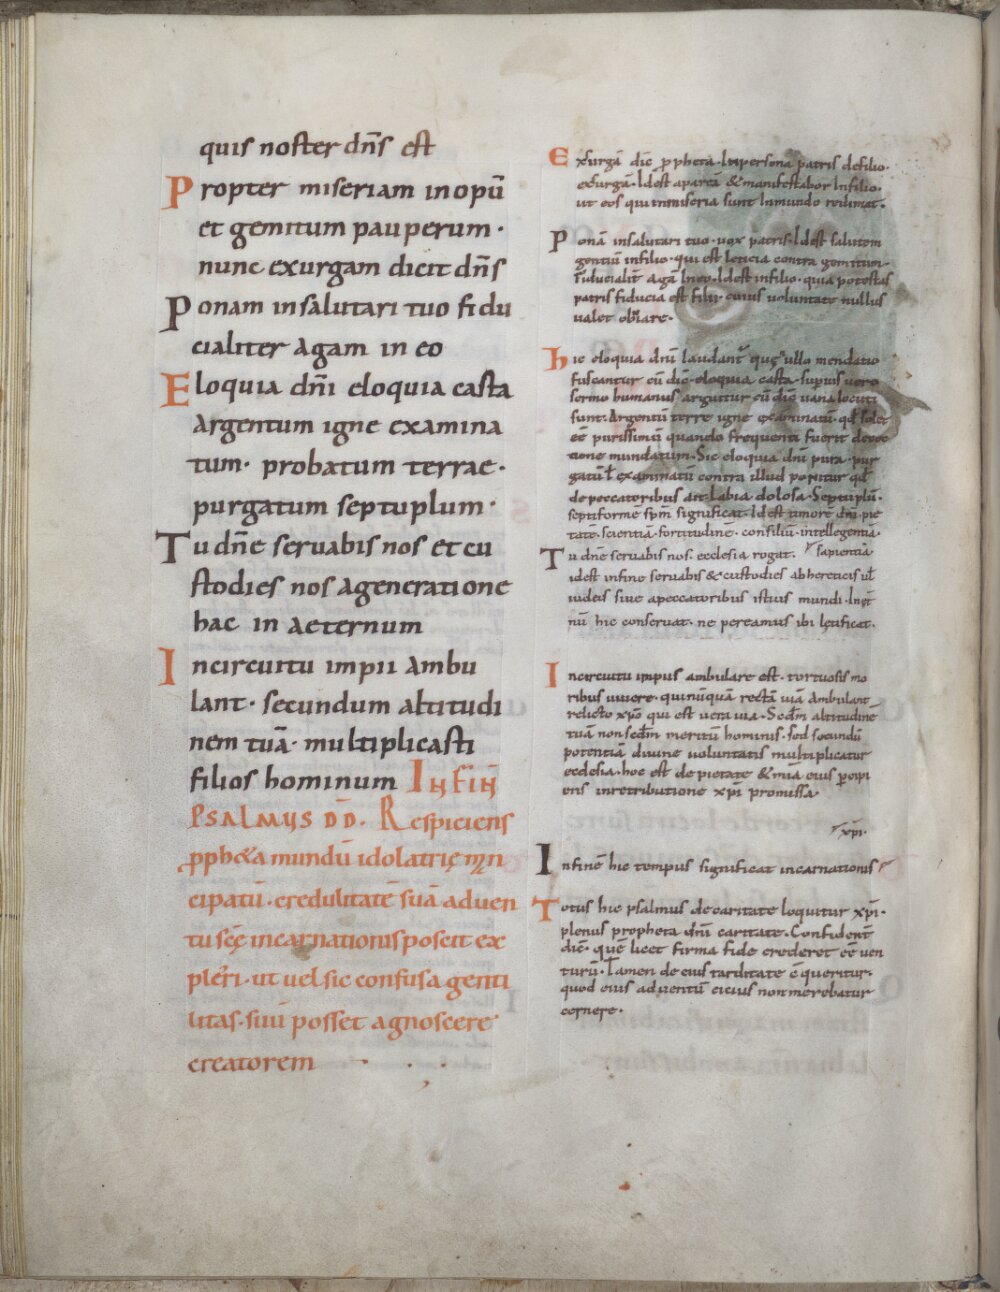 quis noster dn̄s est
Propter miseriam inopū
et gemitum pauperum·
nunc exurgam dicit dn̄s
Ponam insalutari tuo fidu
cialiter agam in eo
Eloquia dn̄i eloquia casta
Argentum igne examina
tum· probatum terrae·
purgatum septuplum·
Tu dn̄e seruabis nos et cu
stodies nos ageneratione
hac in aeternum
Incircuitu impii ambu
lant· secundum altitudi
nem tuā· multiplicasti
filios hominum IN FIN̄
PSALMUS DD̄. Respiciens
ppheta mundū idolatrię
cipatū· credulitatē suā aduen
tu scę incarnationis poscit ex
pleri· ut uel sic confusa genti
litas· suū posset agnoscere
creatorem
Exurgā dic̄ ppheta· Inpersona patris defilio·
exurgā· Idest apareā & manifestabor Infilio·
ut eos qui inmiseria sunt Inmundo redimat·
Ponā insalutari tuo· uox patris· Idest salutem
gentiū infilio· qui est leticia contra gemitum·
Fiducialit̄ agā Ineo· Idest infilio· quia potestas
patris fiducia est filii· cuius voluntate nullus
ualet obuiare·
hic eloquia dn̄i laudant̄ ullo mendatio
fuscantur cū dic̄· eloquia casta· superius uero
sermo humanus arguitur cū dic̄ uana locuti
sunt· Argentū terre igne examinatū· qd̄ solet
ēē purissimū quando frequenti fuerit decoc
tione mundatum· Sic eloquia dn̄i pura· pur
gatū ł examinatū contra illud ponitur qd̄
de peccatoribus ait Labia dolosa· Septuplū·
septiformē spm̄ significat· Idest timore dn̄i· pie
tatē· scientiā· fortitudinē· consiliū· intellegentiā·
sapientiā
Tu dn̄e seruabis nos· ecclesia rogat·
idest infine seruabis & custodies ab hereticis uł
iudeis siue apeccatoribus istius mundi· Inęt
nū hic conseruat· ne pereamus ibi lętificat·
Incircuitu impius ambulare est· tortuosis mo
ribus uiuere· qui nūquā rectā uiā ambulant
relicto xp̄o qui est uera uia· Scdm̄ altitudinē
tuā non scdm̄ meritū hominis· sed secundū
potentiā diuine uoluntatis multiplicatur
ecclesia· hoc est de pietate & mīa eius
ens inretributione xp̄i promissa·
xp̄i·
Infinē hic tempus significat incarnationis
Totus hic psalmus de caritate loquitur xp̄i·
plenus propheta dn̄i caritate· Confident̄
dic̄· quē licet firma fide crederet ēē uen
turū· Tamen de eius tarditate queritur·
quod eius aduentū cicius non merebatur
cernere·